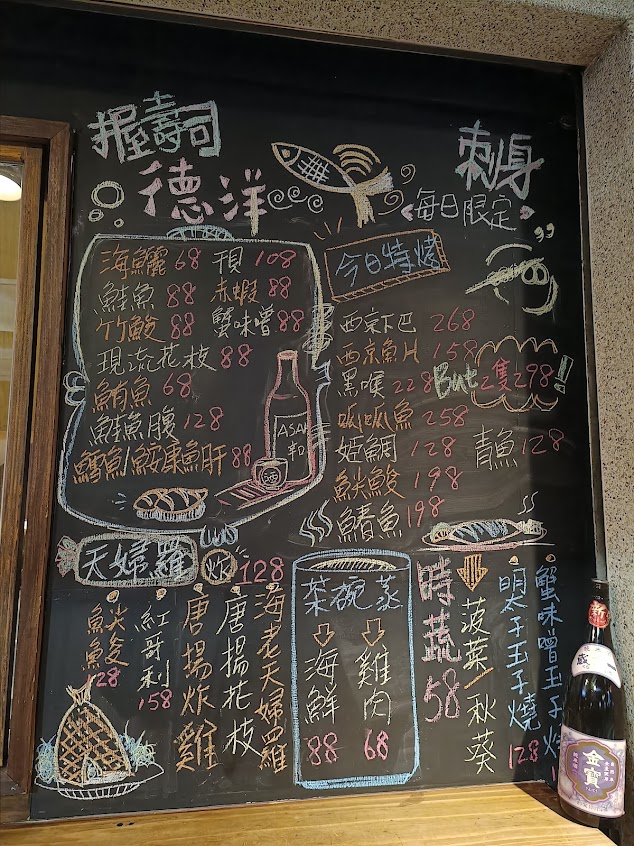 握壽司
德洋
刺身
每日限定
海鱺 68
鮭魚 88
竹鮻 88
現流花枝 88
鮪魚 68
鮭魚腹 128
鱈魚/鮟康魚肝 88
干貝 108
赤蝦 88
蟹味噌 88
ASAHI
今日特烤
西京下巴 268
西京魚片 158
黑喉 228 But 2隻298!
呱呱魚 258
姬鯛 128
青魚 128
尖鮻 198
鰆魚 198
天婦羅
炸 128
尖鮻 128
紅哥利 158
唐揚炸雞
唐揚花枝
海老天婦羅
茶碗蒸
海鮮 88
雞肉 68
時蔬 58
菠菜/秋葵
明太子玉子燒 128
蟹味噌玉子燒
新
金寶